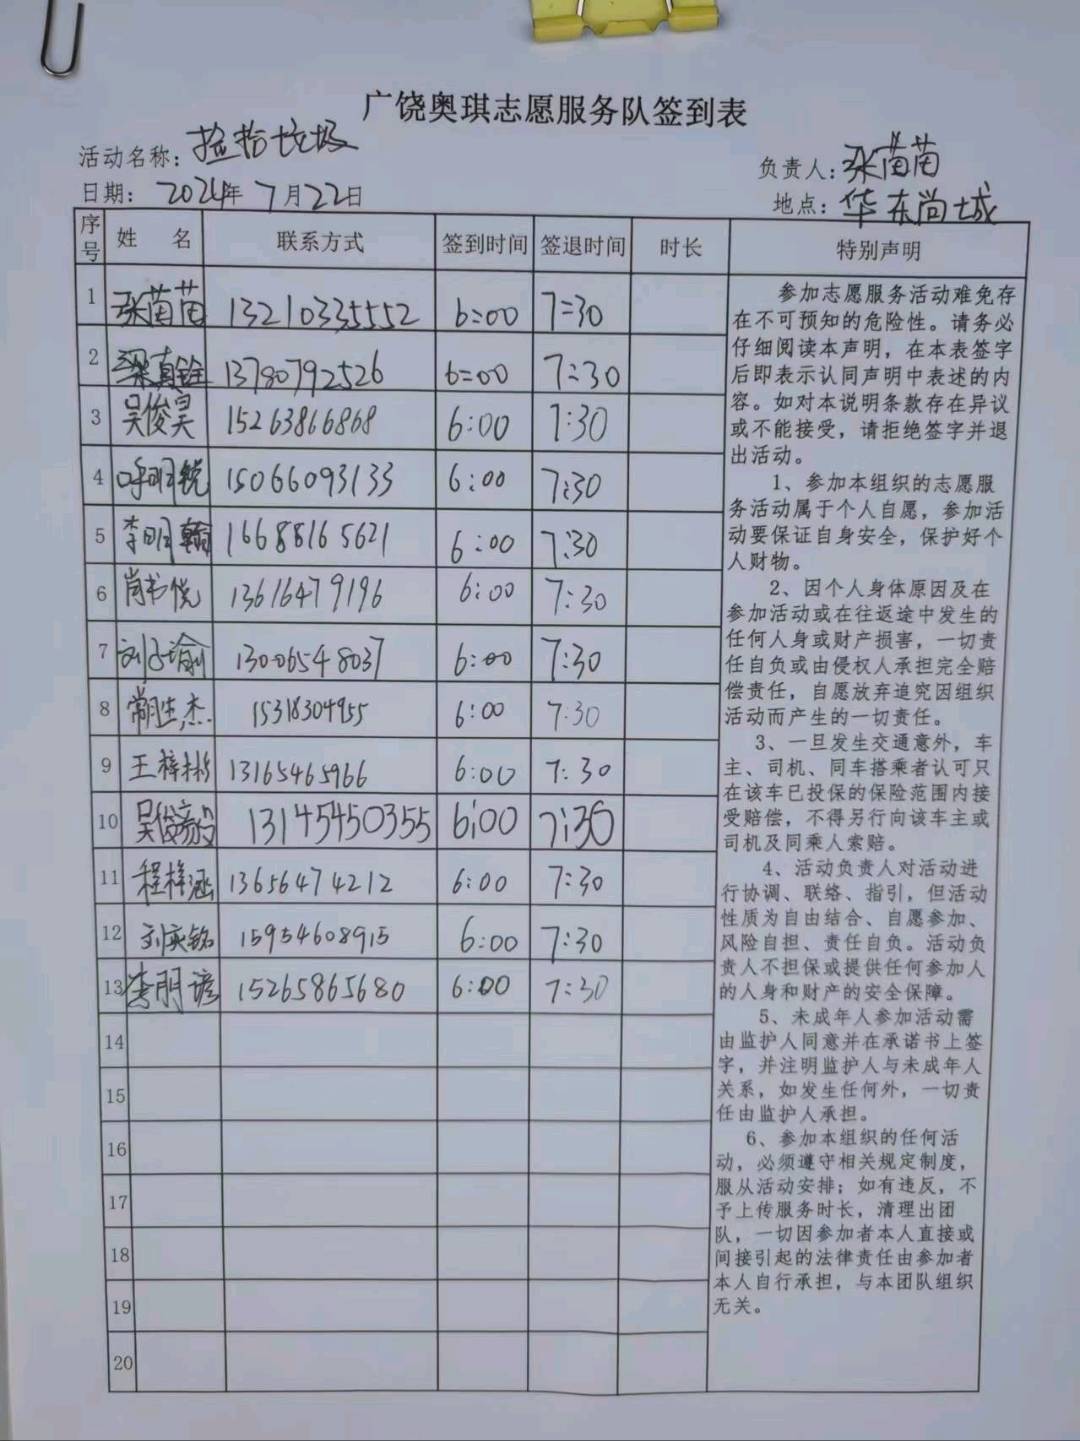 广饶奥琪志愿服务队签到表
活动名称：捡拾垃圾
负责人：张苗苗
日期： 2024年 7月22日
地点：华东尚城
序号 姓 名 联系方式 签到时间 签退时间 时长 特别声明
1 张苗苗 13210335552 6:00 7:30
2 梁真铨 13780792526 6:00 7:30
3 吴俊昊 15263866868 6:00 7:30
4 呼明锐 15066093133 6:00 7:30
5 李明翰 16688165621 6:00 7:30
6 肖书悦 13616479196 6:00 7:30
7 刘子瑜 13006548037 6:00 7:30
8 常胜杰 15318304955 6:00 7:30
9 王梓彬 13165465966 6:00 7:30
10 吴俊毅 13145450355 6:00 7:30
11 程梓涵 13656474212 6:00 7:30
12 刘奕铭 15954608915 6:00 7:30
13 李明谚 15265865680 6:00 7:30
14
15
16
17
18
19
20
参加志愿服务活动难免存
在不可预知的危险性。请务必
仔细阅读本声明，在本表签字
后即表示认同声明中表述的内
容。如对本说明条款存在异议
或不能接受，请拒绝签字并退
出活动。
1、参加本组织的志愿服
务活动属于个人自愿，参加活
动要保证自身安全，保护好个
人财物。
2、因个人身体原因及在
参加活动或在往返途中发生的
任何人身或财产损害，一切责
任自负或由侵权人承担完全赔
偿责任，自愿放弃追究因组织
活动而产生的一切责任。
3、一旦发生交通意外，车
主、司机、同车搭乘者认可只
在该车已投保的保险范围内接
受赔偿，不得另行向该车主或
司机及同乘人索赔。
4、活动负责人对活动进
行协调、联络、指引，但活动
性质为自由结合、自愿参加、
风险自担、责任自负。活动负
责人不担保或提供任何参加人
的人身和财产的安全保障。
5、未成年人参加活动需
由监护人同意并在承诺书上签
字，并注明监护人与未成年人
关系，如发生任何外，一切责
任由监护人承担。
6、参加本组织的任何活
动，必须遵守相关规定制度，
服从活动安排；如有违反，不
予上传服务时长，清理出团
队，一切因参加者本人直接或
间接引起的法律责任由参加者
本人自行承担，与本团队组织
无关。